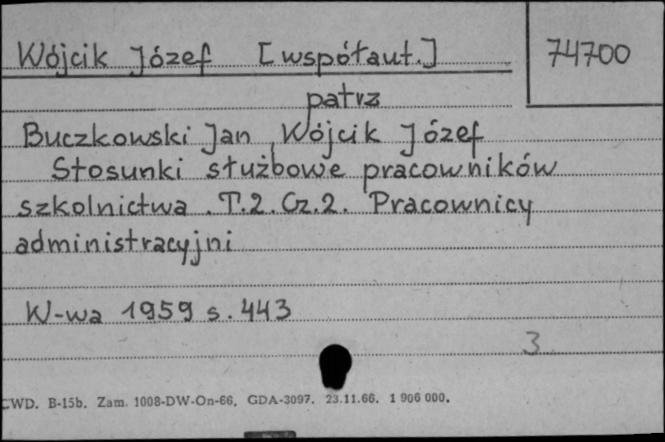 Wójcik Józef [współaut.] 74700
patrz
Buczkowski Jan, Wójcik Józef
Stosunki służbowe pracowników
szkolnictwa. T.2. Cz.2. Pracownicy
administracyjni
W-wa 1959 s. 443
3
CWD. B-15b. Zam. 1008-DW-On-66. GDA-3097. 23.11.66. 1 906 000.